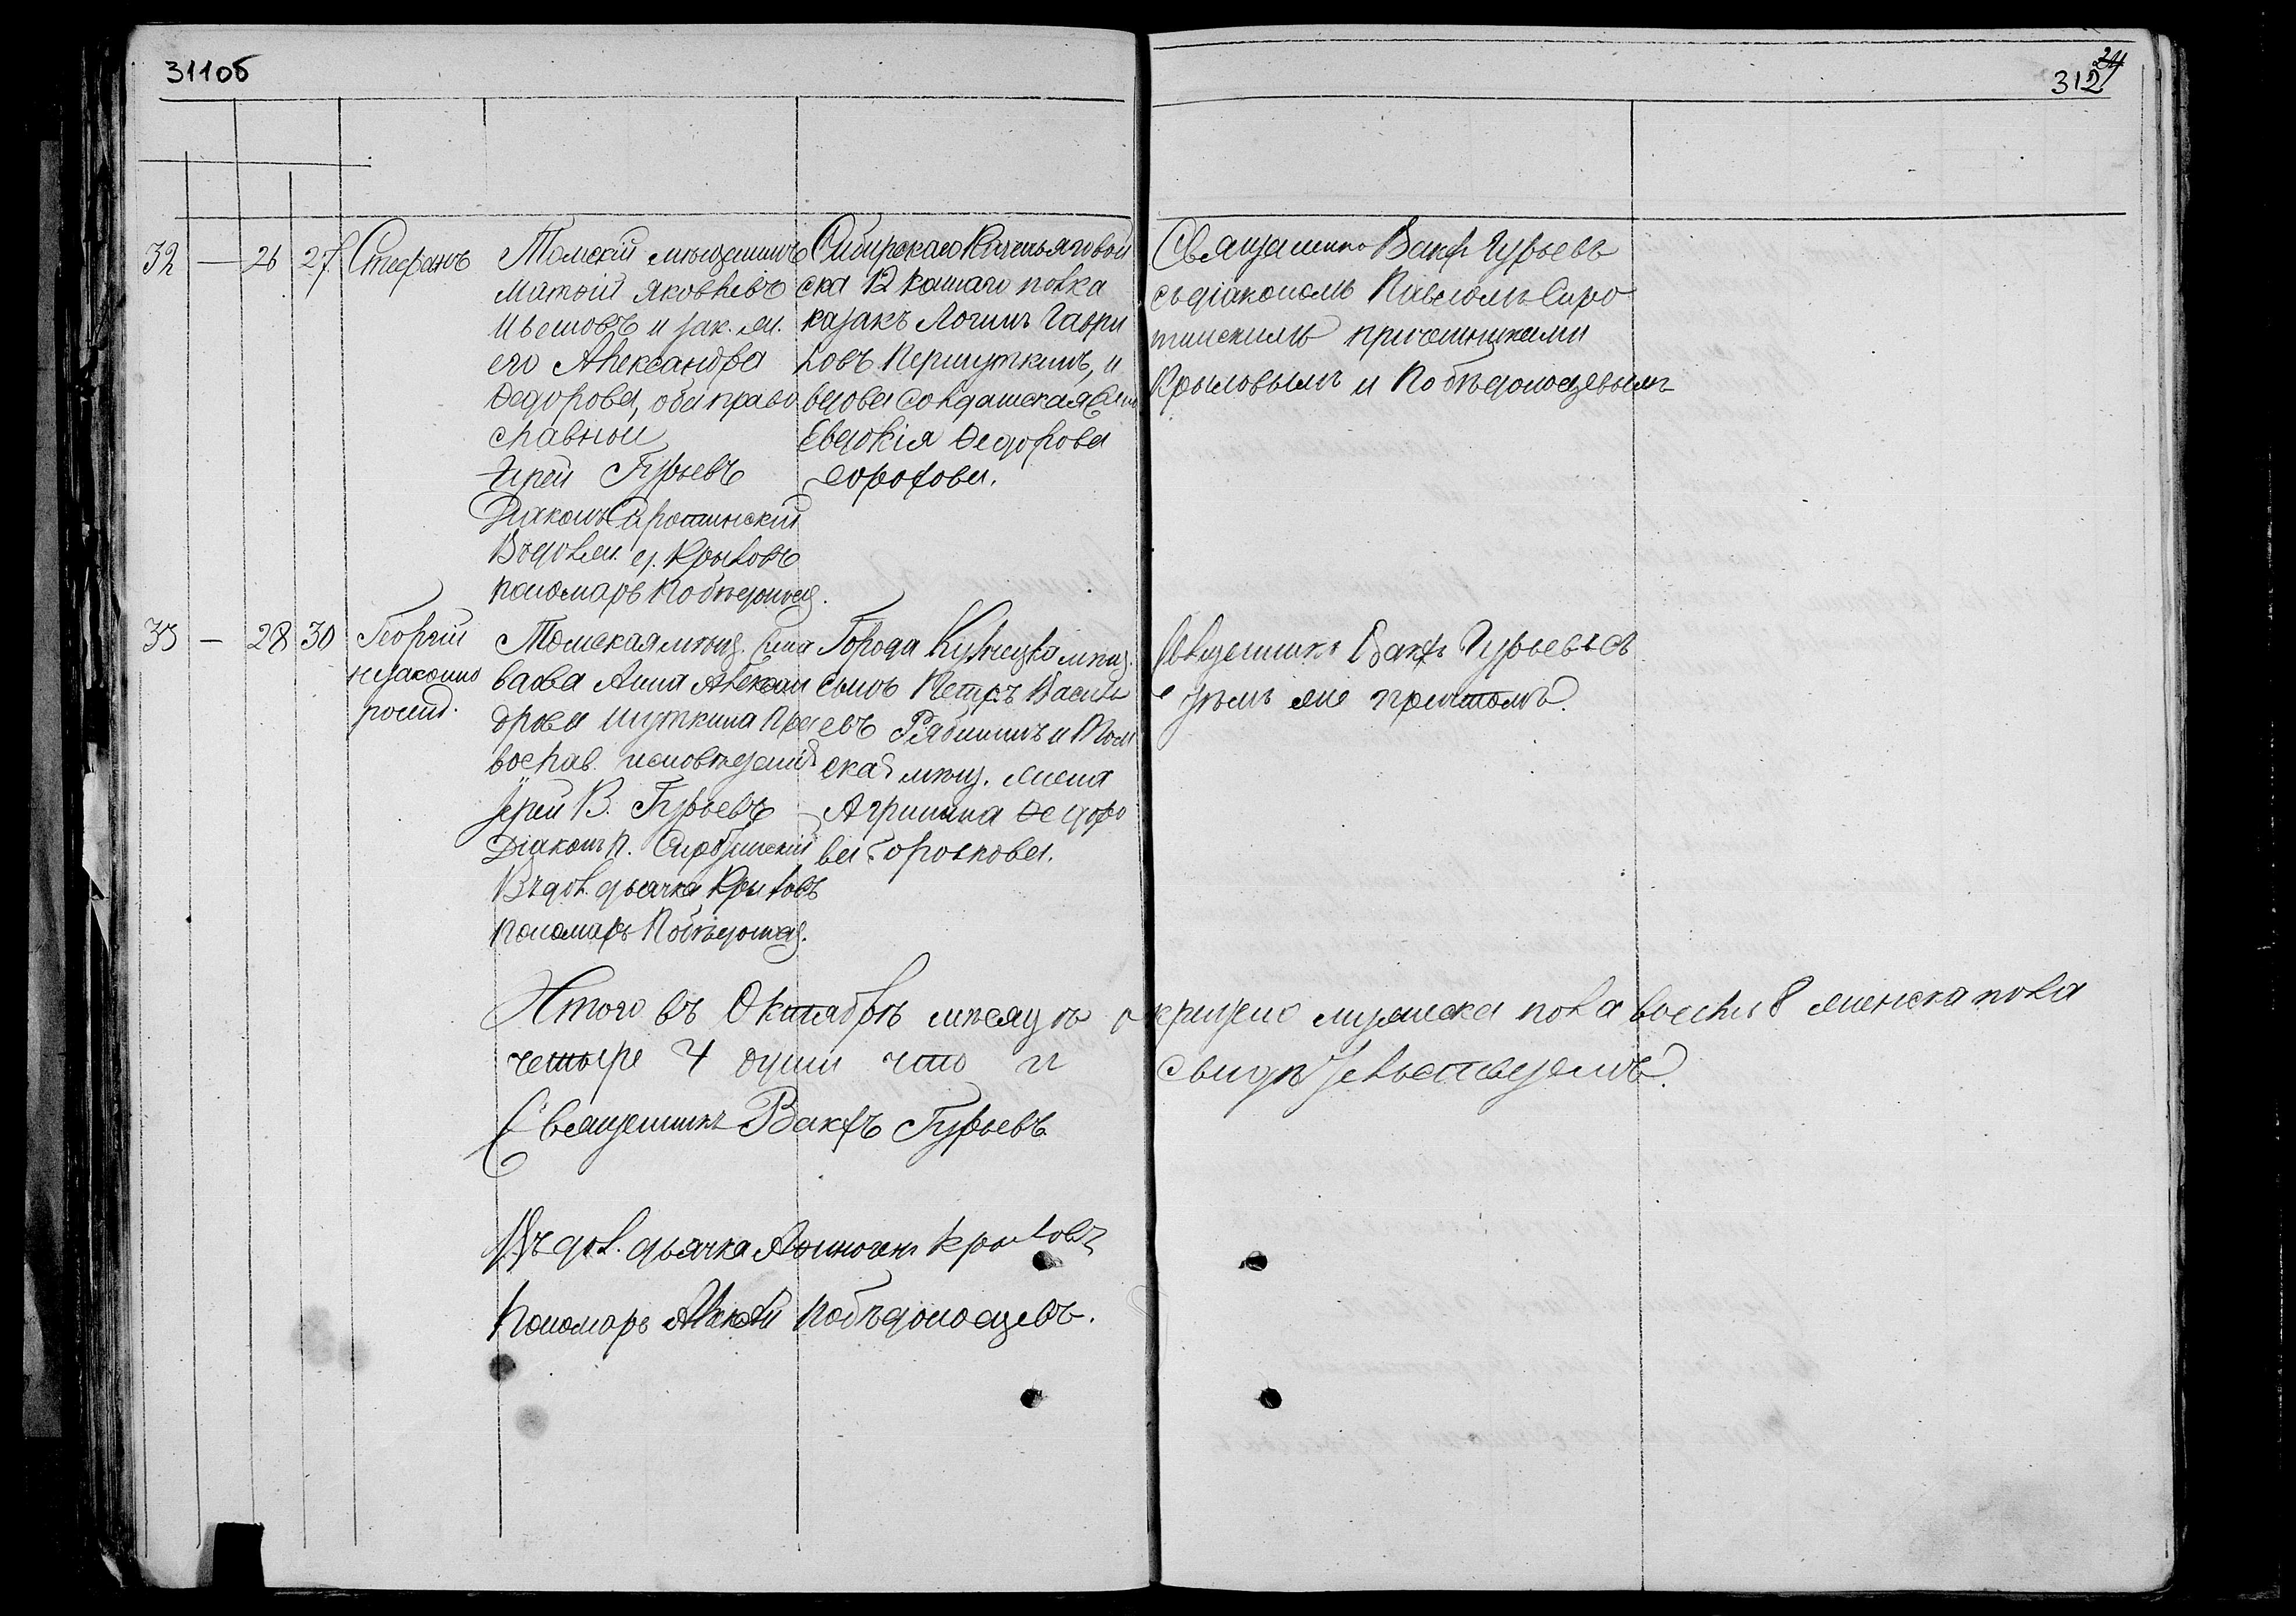 311об
24
312
32 — 26 27 Стефанъ
Томскій мѣщанинъ
Матѳій Яковлевъ
и зак. ж.
его Александра
Ѳедорова, оба право
славной
Іерей Гурьевъ
Діаконъ Сиротинскій
В. дол. д. Крыловъ
пономарь Побѣдоносц.
Сибирскаго Казачьяго вой
ска 12 коннаго полка
казакъ Логинъ Гаври
ловъ Першуткинъ, и
вдова солдатская
Евдокія Ѳедорова
Священникъ Вакхъ Гурьевъ
съ діакономъ Павломъ Сиро
тинскимъ причетниками
Крыловымъ и Побѣдоносцевымъ
33 — 28 30 Георгій
незаконно
рожд.
Томская мѣщ.
Анна Алексан
дрова Шуткина пра
вослав. исповѣданія
Іерей В. Гурьевъ
Діаконъ П. Сиротинскій
В. дол. дьячка Крыловъ
пономарь Побѣдоносц.
Города Кузнецка мѣщ.
сынъ Петръ Василь
евъ Рябининъ и Том
ская мѣщ. жена
Агрипина Ѳедоро
ва
Священникъ Вакхъ Гурьевъ съ
тѣмъ же причтомъ.
Итого въ Октябрѣ мѣсяцѣ окрещено мужеска пола восемь 8 женска пола
четыре 4 души что и свидѣтельствуемъ.
Священникъ Вакхъ Гурьевъ
В. дол. дьячка Крыловъ
Пономарь Алексѣй Побѣдоносцевъ.